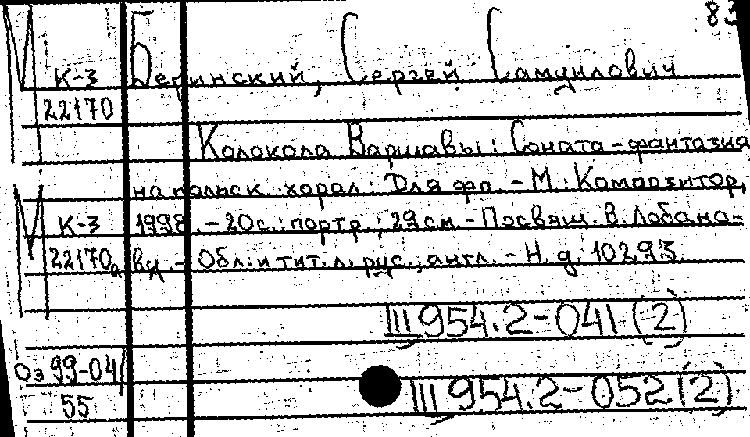 83
К-3 Беринский, Сергей Самуилович
22170
Колокола Варшавы: Соната-фантазия
на польск. хорал: Для фп. - М.: Композитор,
К-3 1998. - 20 с.: портр.; 29 см. - Посвящ. В. Лобано-
22170а ву. - Обл. и тит. л. рус., англ. - Н. д. 10293.
III 954.2-041 (2)
Оз 99-04/
55 III 954.2-052 (2)